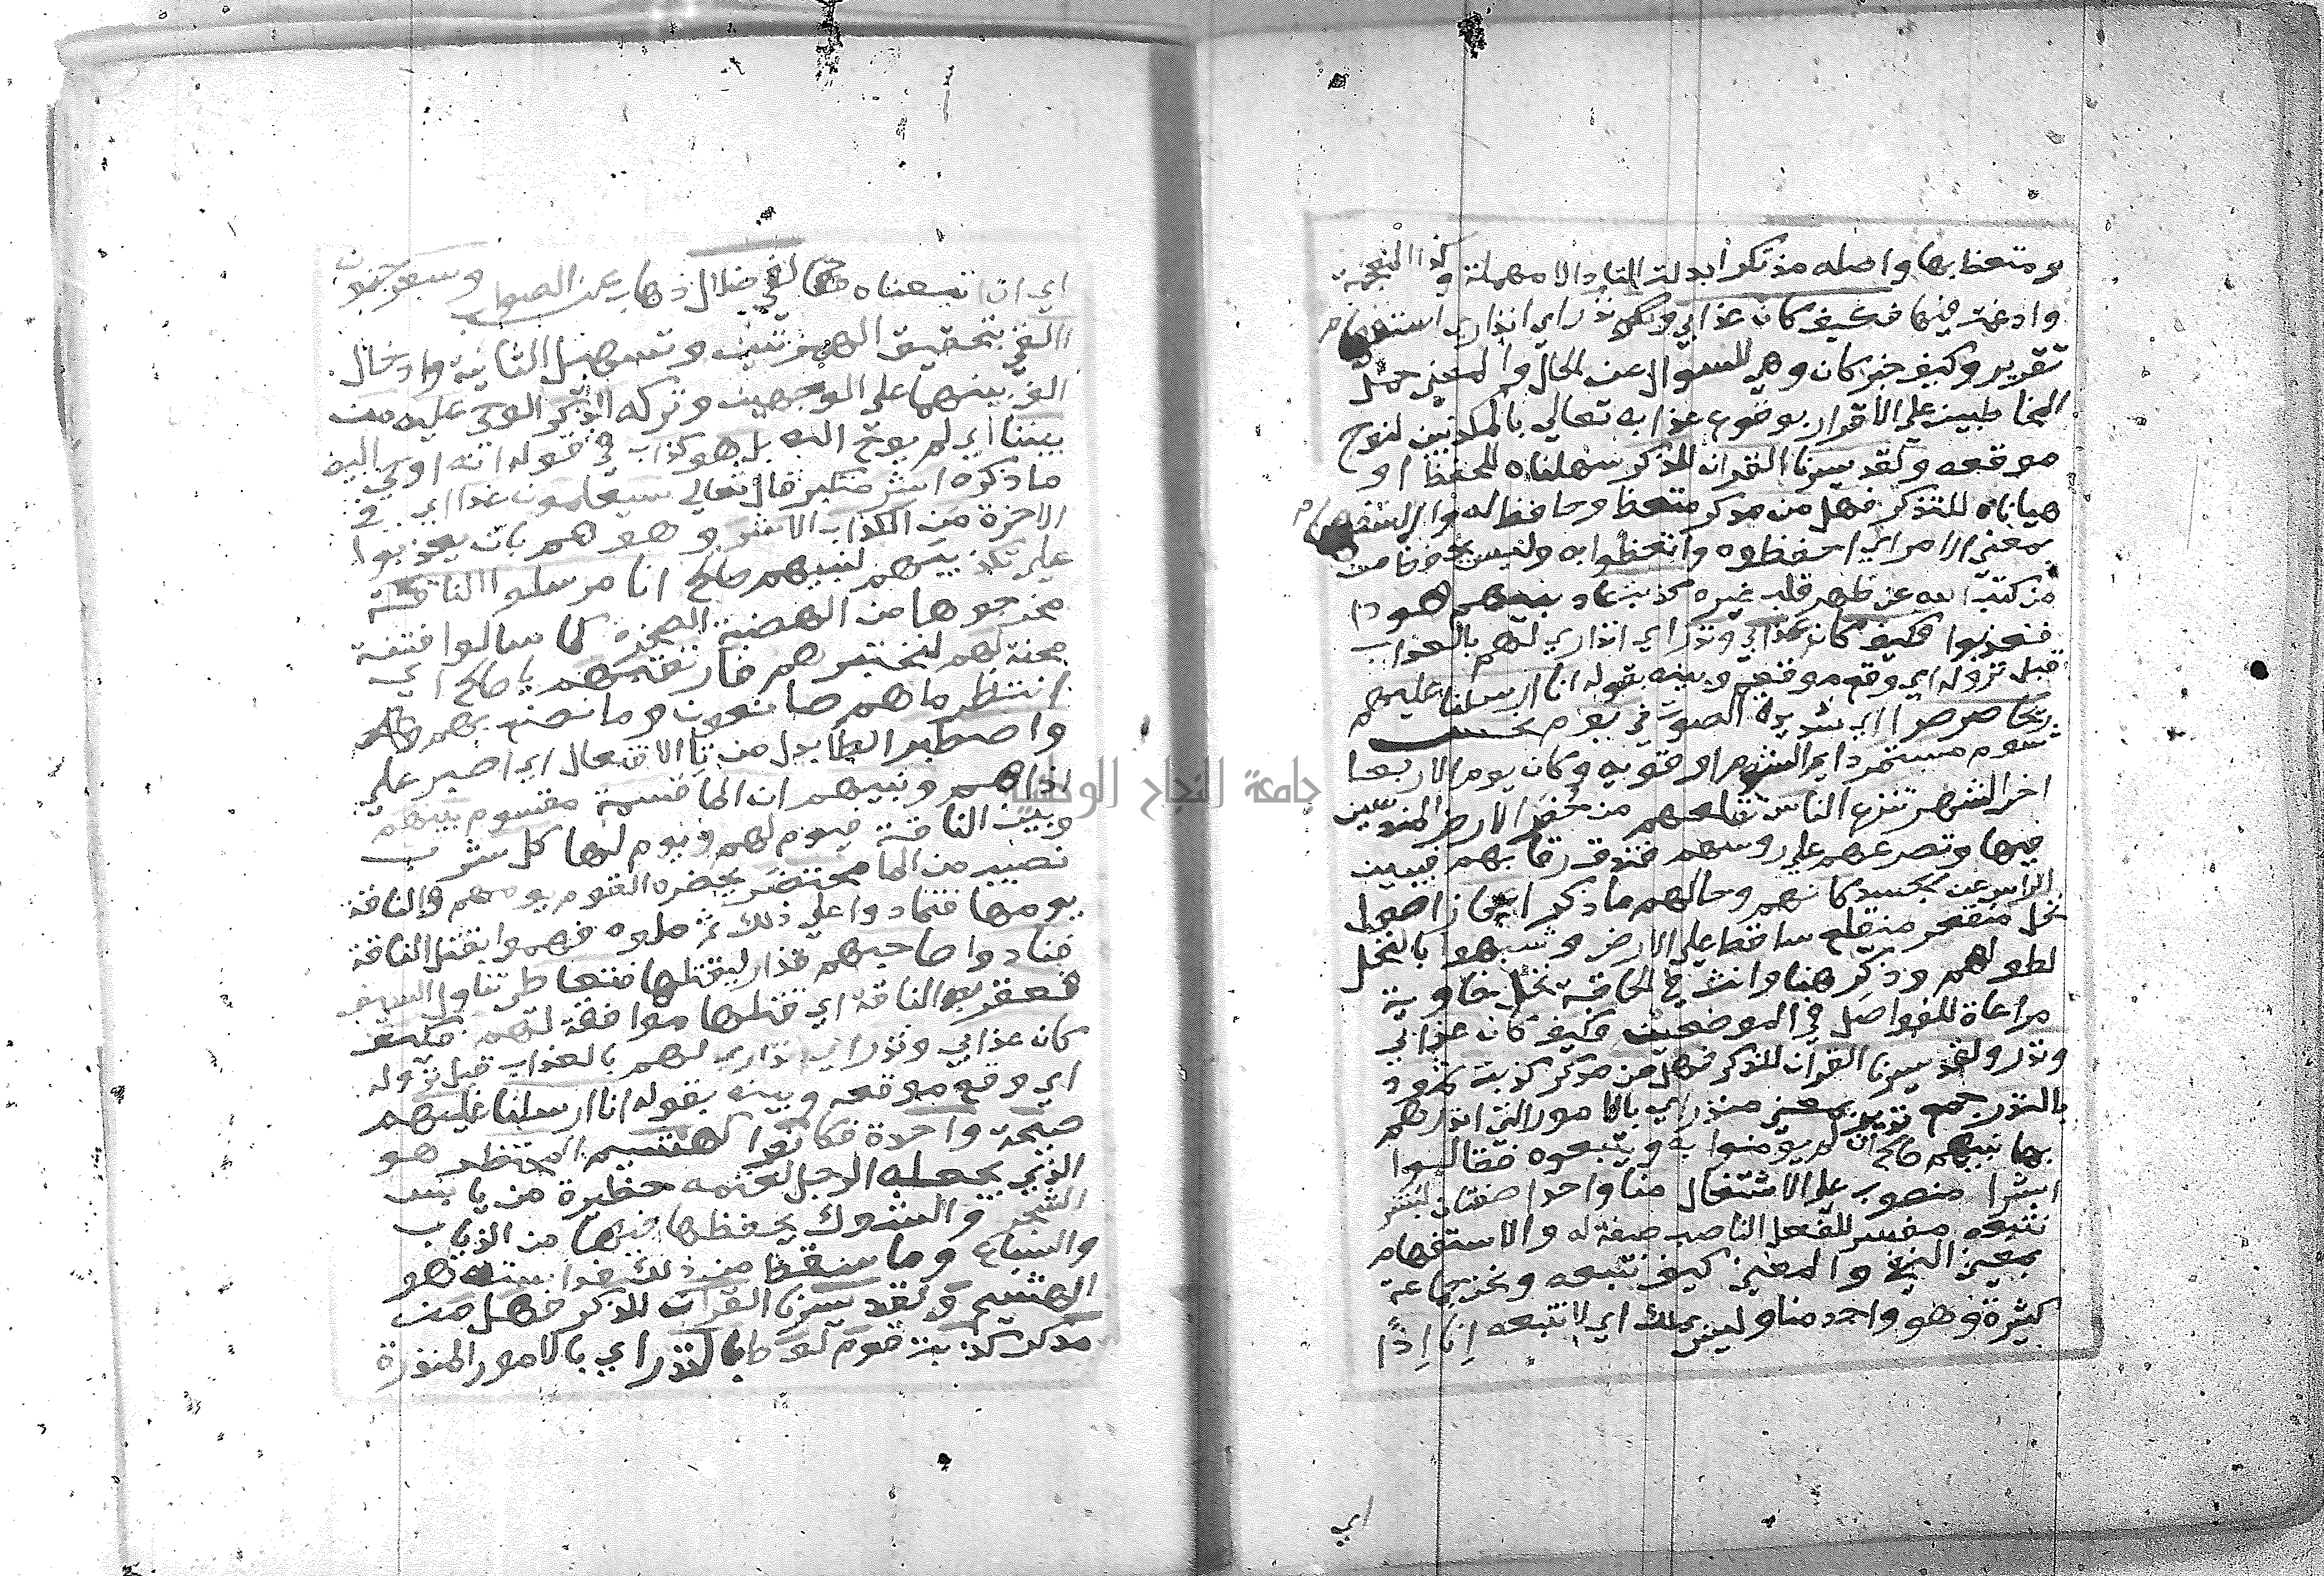 و متعظ بها واصله مذتكرا بدلت التا دالا مهملة وكذا المعجمة
وادغمت فيها فكيف كان عذابي ونذر اي انذاري استفهام
تقرير وكيف خبر كان وهي للسوال عن الحال والمعني حمل
المخاطبين علي الاقرار بوقوع عذابه تعالي بالمكذبين لنوح
موقعه ولقد يسرنا القران للذكر سهلناه للحفظ او
هياناه للتذكر فهل من مدكر متعظ وحافظ له والاستفهام
بمعني الامر اي احفظوه واتعظوا به وليس يحفظ من
من كتب الله عن ظهر قلب غيره كذبت عاد نبيهم هودا
فعذبوا فكيف كان عذابي ونذر اي انذاري لهم بالعذاب
قبل نزوله اي وقع موقعه وبينه بقوله انا ارسلنا عليهم
ريحا صرصرا اي شديدة الصوت في يوم نحس
شوم مستمر دايم الشوم او قويه وكان يوم الاربعا
اخر الشهر تنزع الناس تقلعهم من حفر الارض المندسين
فيها وتصرعهم علي روسهم فتدق رقابهم فتبين
الراس عن الجسد كانهم وحالهم ما ذكر اعجاز اصول
نخل منقعر منقلع ساقط علي الارض وشبهوا بالنخل
لطولهم وذكر هنا وانث في الحاقة نخل خاوية
مراعاة للفواصل في الموضعين فكيف كان عذابي
ونذر ولقد يسرنا القران للذكر فهل من مدكر كذبت ثمود
بالنذر جمع نذير بمعني منذر اي بالامور التي انذرهم
بها نبيهم صالح ان لم يومنوا به ويتبعوه فقالوا
ابشرا منصوب علي الاشتغال منا واحدا صفتان لبشر
نتبعه مفسر للفعل الناصب صفة له والاستفهام
بمعني النفي والمعني كيف نتبعه ونحن جماعة
كثيرة وهو واحد منا وليس بملك اي لا نتبعه انا اذا
اي
اي ان اتبعناه لفي ضلال ذهاب عن الصواب وسعر جنون
االقي بتحقيق الهمزتين وتسهيل الثانية وادخال
الف بينهما علي الوجهين وتركه الذكر الوحي عليه من
بيننا اي لم يوح اليه بل هو كذاب في قوله انه اوحي اليه
ما ذكره اشر متكبر قال تعالي سيعلمون غدا اي في
الاخرة من الكذاب الاشر وهو هم بان يعذبوا
علي تكذيبهم لنبيهم صالح انا مرسلوا الناقة
مخرجوها من الهضبة الصخرة كما سالوا فتنة
محنة لهم لنختبرهم فارتقبهم يا صالح اي
انتظر ما هم صانعون وما نصنع بهم
واصطبر الطا بدل من تا الافتعال اي اصبر علي
اذاهم ونبيهم ان الما قسمة مقسوم بينهم
وبين الناقة فيوم لهم ويوم لها كل شرب
نصيب من الما محتضر يحضره القوم يومهم والناقة
يومها فتمادوا علي ذلك ثم ملوه فهموا بقتل الناقة
فنادوا صاحبهم قذار ليقتلها فتعاطي تناول السيف
فعقر به الناقة اي قتلها موافقة لهم فكيف
كان عذابي ونذر اي انذاري لهم بالعذاب قبل نزوله
اي وقع موقعه وبينه بقوله انا ارسلنا عليهم
صيحة واحدة فكانوا كهشيم المحتظر هو
الذي يجعله الرجل لغنمه حظيرة من يابس
الشجر والشوك يحفظها فيها من الذياب
والسباع وما سقط من ذلك فداسته هو
الهشيم ولقد يسرنا القران للذكر فهل من
مدكر كذبت قوم لوط بالنذر اي بالامور المنذرة
جامعة النجاح الوطنية